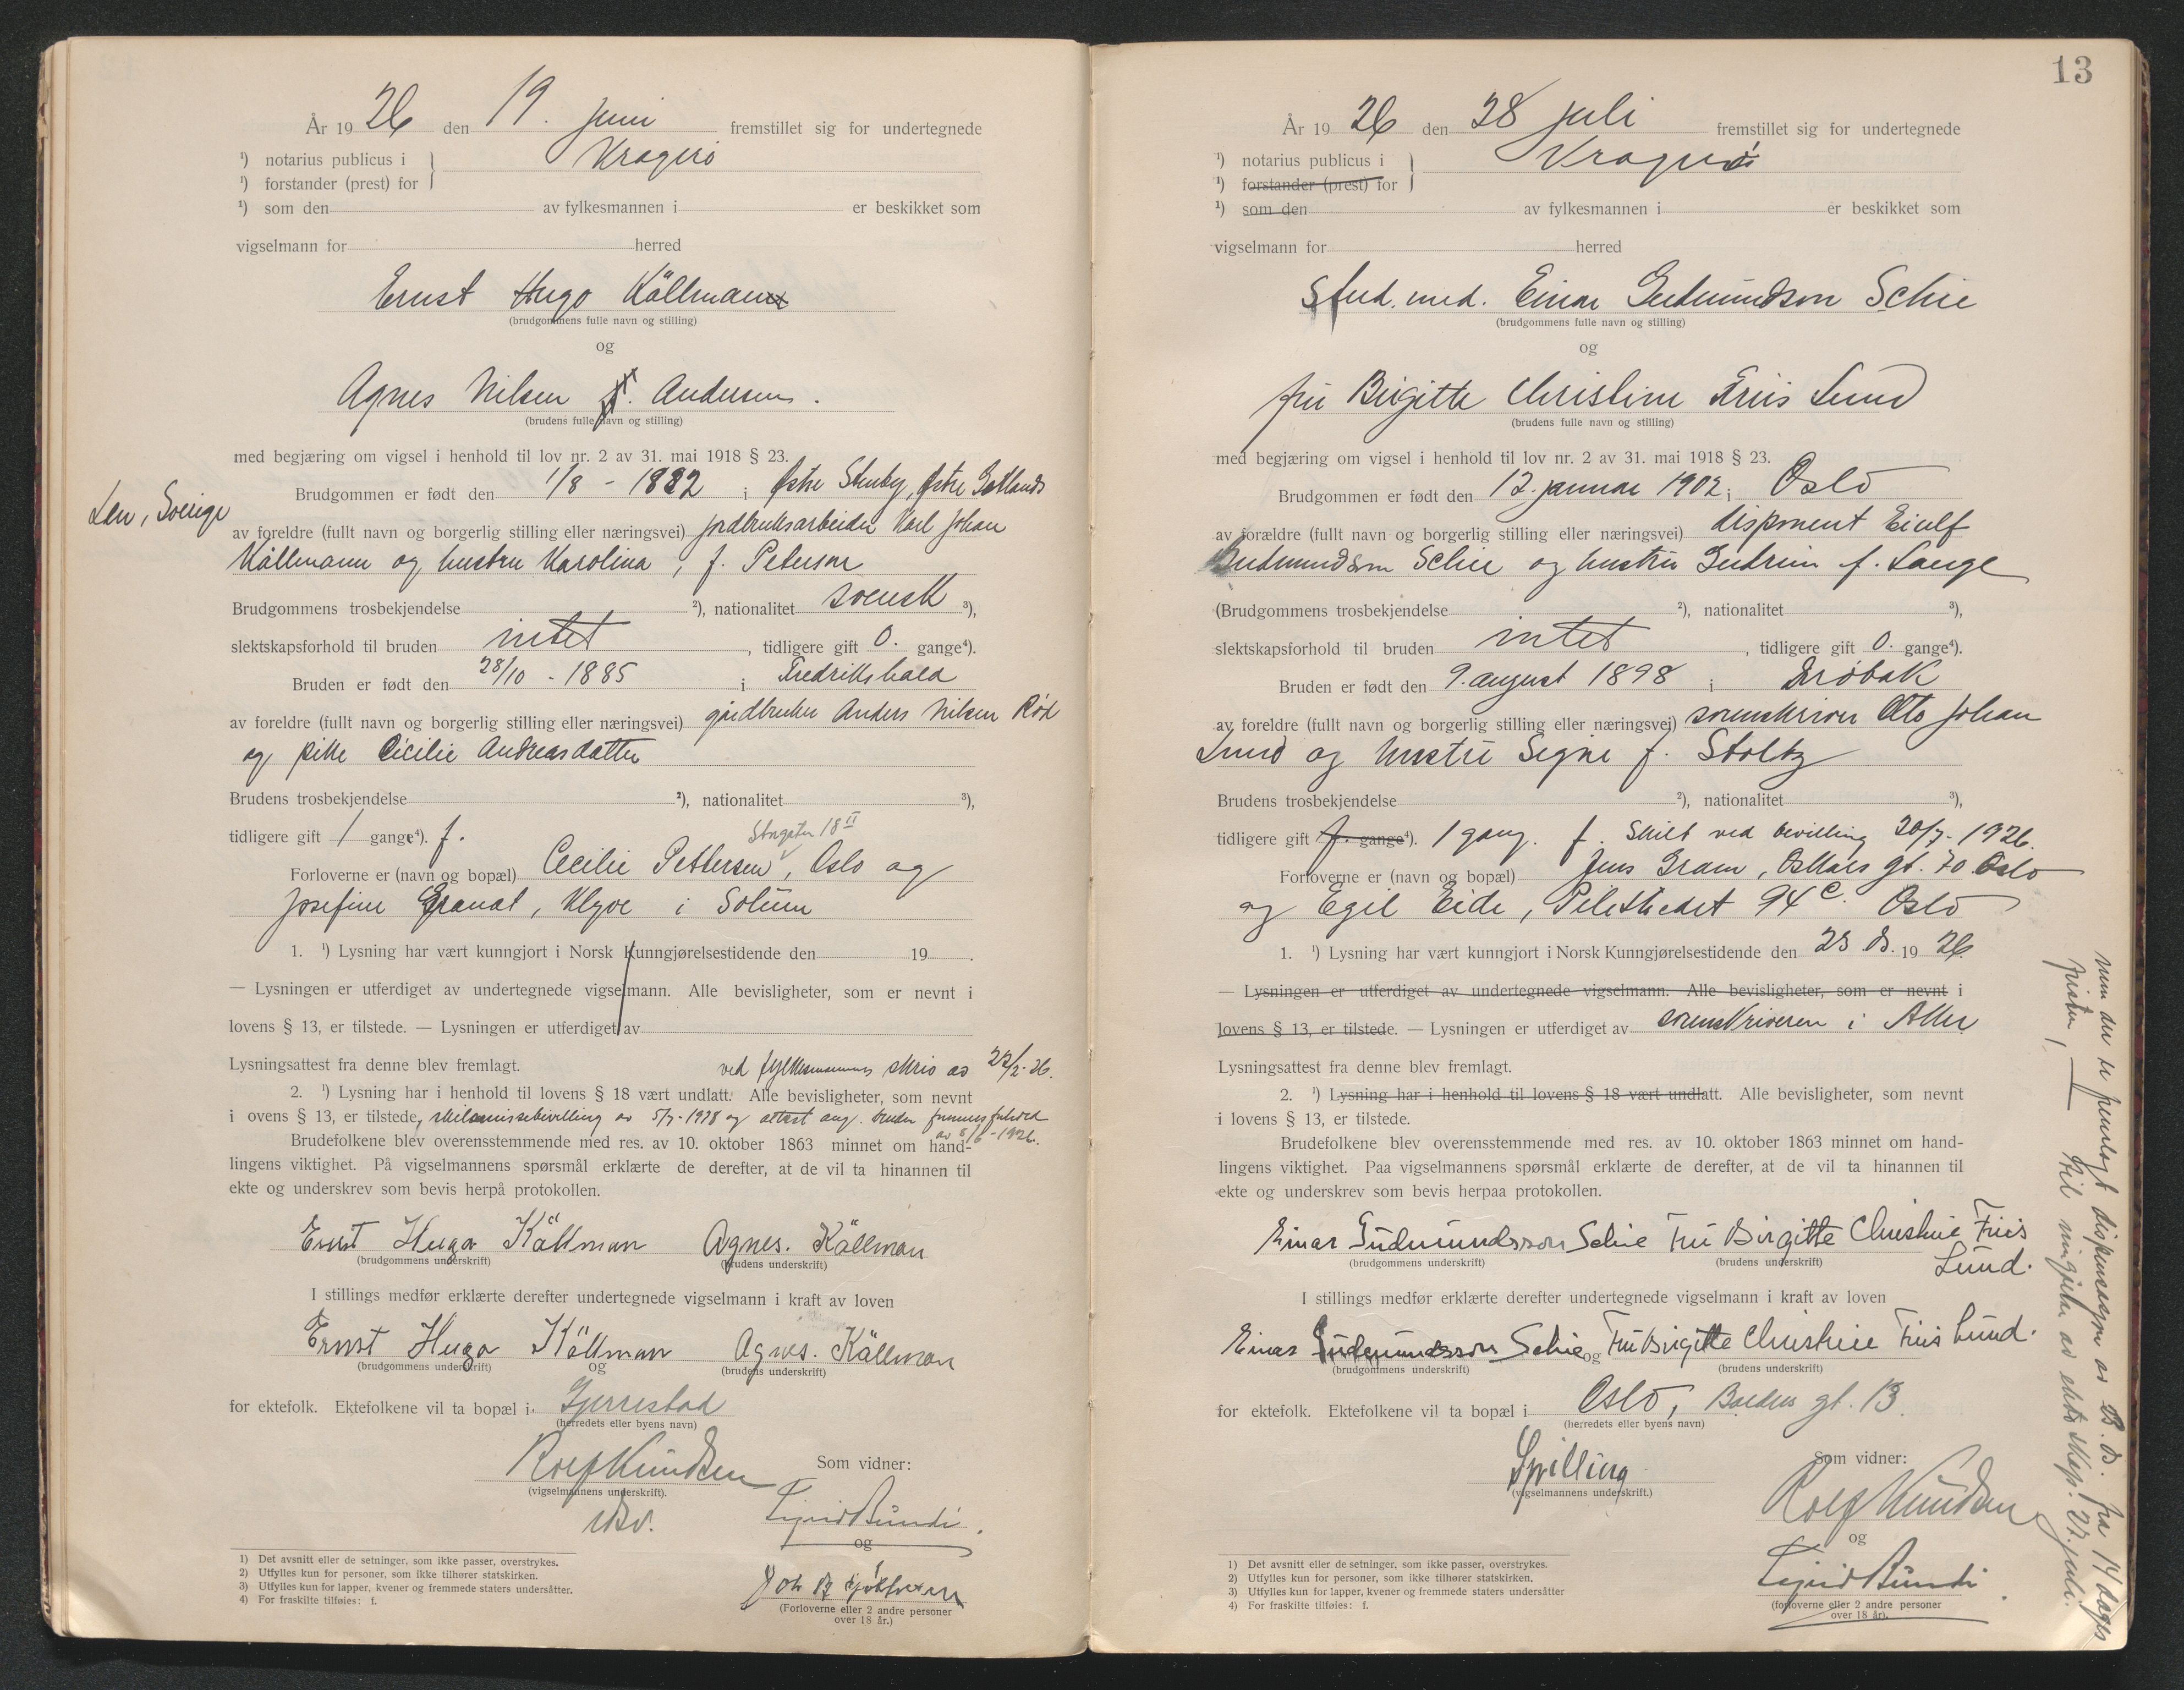 År 1926 den 19. juni fremstillet sig for undertegnede
¹) notarius publicus i
Kragerø
¹) forstander (prest) for
¹) som den av fylkesmannen i er beskikket som
vigselmann for herred
Ernst Hugo Källmann
(brudgommens fulle navn og stilling)
og
Agnes Nilsen f. Andersen.
(brudens fulle navn og stilling)
med begjæring om vigsel i henhold til lov nr. 2 av 31. mai 1918 § 23.
Brudgommen er født den 1/8 - 1882 i Østre Stenby, Østre Gotlands
Len, Sverige
av foreldre (fullt navn og borgerlig stilling eller næringsvei) jordbruksarbeider Karl Johan
Källmann og hustru Karolina, f. Peterson
Brudgommens trosbekjendelse ²), nationalitet svensk ³),
slektskapsforhold til bruden intet, tidligere gift 0. gange⁴).
Bruden er født den 28/10 - 1885 i Fredrikshald
av foreldre (fullt navn og borgerlig stilling eller næringsvei) gårdbruker Anders Nilsen Rød
og pike Cicilie Andreasdatter
Brudens trosbekjendelse ²), nationalitet ³),
tidligere gift 1 gange⁴). f.
Storgaten 18 II
Forloverne er (navn og bopæl) Cecilie Pettersen, Oslo og
Josefine Granat, Klyve i Solum
1. ¹) Lysning har vært kunngjort i Norsk Kunngjørelsestidende den 19 .
— Lysningen er utferdiget av undertegnede vigselmann. Alle bevisligheter, som er nevnt i
lovens § 13, er tilstede. — Lysningen er utferdiget av
Lysningsattest fra denne blev fremlagt. ved fylkesmannens skriv av 22/2-26.
2. ¹) Lysning har i henhold til lovens § 18 vært undlatt. Alle bevisligheter, som nevnt
i ovens § 13, er tilstede, skilsmissebevilling av 5/7-1918 og attest ang. bruden formuesforhold
av 8/6-1926.
Brudefolkene blev overensstemmende med res. av 10. oktober 1863 minnet om hand-
lingens viktighet. På vigselmannens spørsmål erklærte de derefter, at de vil ta hinannen til
ekte og underskrev som bevis herpå protokollen.
Ernst Hugo Källman Agnes. Källman
(brudgommens underskrift) (brudens underskrift)
I stillings medfør erklærte derefter undertegnede vigselmann i kraft av loven
Ernst Hugo Källman Agnes. Källman
(brudgommens underskrift) og (brudens underskrift)
for ektefolk. Ektefolkene vil ta bopæl i Gjerrestad
(herredets eller byens navn)
Rolf Knudsen Som vidner:
(vigselmannens underskrift).
Sigrid Bundi.
og
(Forloverne eller 2 andre personer
over 18 år.)
1) Det avsnitt eller de setninger, som ikke passer, overstrykes.
2) Utfylles kun for personer, som ikke tilhører statskirken.
3) Utfylles kun for lapper, kvener og fremmede staters undersåtter.
4) For fraskilte tilføies: f.
13
År 1926 den 28 juli fremstillet sig for undertegnede
¹) notarius publicus i
Kragerø
¹) forstander (prest) for
¹) som den av fylkesmannen i er beskikket som
vigselmann for herred
Stud. med. Einar Gudmundson Schie
(brudgommens fulle navn og stilling)
og
fru Birgitte Christine Friis Lund
(brudens fulle navn og stilling)
med begjæring om vigsel i henhold til lov nr. 2 av 31. mai 1918 § 23.
Brudgommen er født den 12. januar 1902 i Oslo
av forældre (fullt navn og borgerlig stilling eller næringsvei) disponent Eiulf
Gudmundson Schie og hustru Gudrun f. Lange
(Brudgommens trosbekjendelse ²), nationalitet ³),
slektskapsforhold til bruden intet, tidligere gift 0. gange⁴).
Bruden er født den 9. august 1898 i Drøbak
av foreldre (fullt navn og borgerlig stilling eller næringsvei) sorenskriver Otto Johan
Lund og hustru Signe f. Stoltz
Brudens trosbekjendelse ²), nationalitet ³),
tidligere gift f. gange⁴). 1 gang. f. Skilt ved bevilling 20/7-1926.
Forloverne er (navn og bopæl) Jens Gram, Oskars gt. 70 Oslo
og Egil Eide, Pilestredet 94 c. Oslo
1. ¹) Lysning har vært kunngjort i Norsk Kunngjørelsestidende den 23 ds. 1926.
— Lysningen er utferdiget av undertegnede vigselmann. Alle bevisligheter, som er nevnt i
lovens § 13, er tilstede. — Lysningen er utferdiget av sorenskriveren i Aker
Lysningsattest fra denne blev fremlagt.
2. ¹) Lysning har i henhold til lovens § 18 vært undlatt. Alle bevisligheter, som nevnt
i lovens § 13, er tilstede.
Brudefolkene blev overensstemmende med res. av 10. oktober 1863 minnet om hand-
lingens viktighet. Paa vigselmannens spørsmål erklærte de derefter, at de vil ta hinannen til
ekte og underskrev som bevis herpaa protokollen.
Einar Gudmundsson Schie Fru Birgitte Christine Friis
Lund.
(brudgommens underskrift) (brudens underskrift)
I stillings medfør erklærte derefter undertegnede vigselmann i kraft av loven
Einar Gudmundsson Schie og Fru Birgitte Christine Friis Lund.
(brudgommens underskrift) (brudens underskrift)
for ektefolk. Ektefolkene vil ta bopæl i Oslo, Balders gt. 13
(herredets eller byens navn)
Spilling Som vidner:
(vigselmannens underskrift.)
Rolf Knudsen
og
Sigrid Bundi.
(forloverne eller 2 andre personer
over 18 år).
1) Det avsnitt eller de setninger, som ikke passer, overstrykes.
2) Utfylles kun for personer, som ikke tilhører statskirken.
3) Utfylles kun for lapper, kvener og fremmede staters undersåtter
4) For fraskilte tilføies: f.
men der er fremlagt dispensasjon av ds. fra 14 dages
fristen, — til inngåelse av ekteskap. 27. juli.